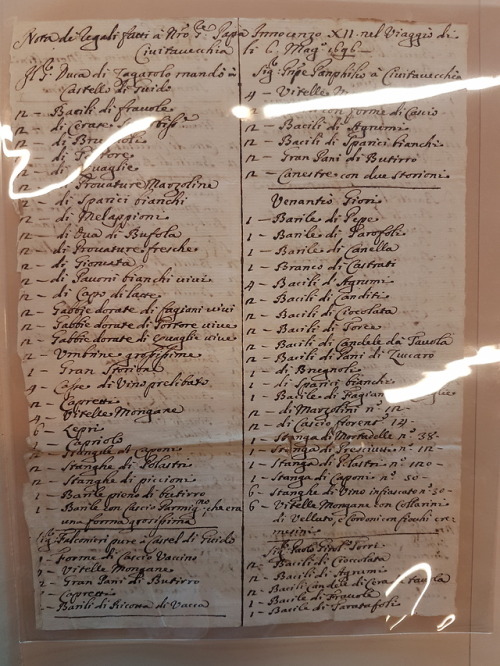 Nota de Regali fatti à Nro Sre Papa Innocenzo XII. nel Viaggio di
Civitavecchia li 6. Mag.o 1696
Il Sr Duca di Zagarolo mandò à
Castello di Guido
12 — Bacili di fravole
12 — di Cerase
12 — di Brugnoli
12 — di Tortore
12 — di Quaglie
12 — di Provature Marzoline
12 — di Sparici bianchi
12 — di Melappioni
12 — di Ova di Bufola
12 — di Provature fresche
12 — di Gioncata
12 — di Pavoni bianchi vivi
12 — di Capi di latte
12 — Gabbie dorate di fagioni vivi
12 — Gabbie dorate di Tortore vive
12 — Gabbie dorate di Quaglie vive
12 — Umbrine grossissime
1 — Gran Storione
4 — Casse di Vino prelibato
12 — Capretti
4 — Vitelle Mongane
6 — Lepri
1 — Capriolo
12 — Stanghe di Caponi
12 — Stanghe di Polastri
12 — Stanghe di piccioni
1 — Barile pieno di butirro
1 — Barile con Cascio Parmig.no che era
una forma grossissima
Falconieri pure à Castel di Guido
1 — forme di Cascio Vaccino
Vitelle Mongane
2 — Gran Pani di Butirro
Capretti
— Barili di Ricotta di Vacca
Sig.r Prñpe Panphilio à Civitavecchia
4 — Vitelle
con forme di Cascio
12 — Bacili di Agrumi
12 — Bacili di Sparici bianchi
12 — Gran Pani di Butirro
12 — Canestre con due Storioni
Venantio Giori
1 — Barile di Pepe
1 — Barile di Garofoli
1 — Barile di Canella
1 — Branco di Castrati
4 — Bacili d'Agrumi
12 — Bacili di Canditi
12 — Bacili di Ciocolata
12 — Bacili di Torce
12 — Bacili di Candele da Tavola
12 — Bacili di Pani di Zuccaro
1 — di Brugnoli
1 — di Sparici bianchi
1 — Bacile di Fagiani
12 — di Marzolini n.o 12
12 — di Cascio fiorent.o 14
1 — Stanga di Mortadelle n.o 38
1 — Stanga di Presciutti n.o 112
1 — Stanga di Polastri n.o 120
1 — Stanga di Caponi n.o 50
6 — Stanghe di Vino infiascate n.o 50
6 — Vitelle Mongane con Collarini
di Velluto, e Cordoni con fiocchi cre
mesini
Sig.r Paolo Girol.o Torri
12 — Bacili di Cioccolata
12 — Bacili di Agrumi
12 — Bacili Candele di Cera a tavola
1 — Bacile di Fravole
1 — Bacile di Taratufoli